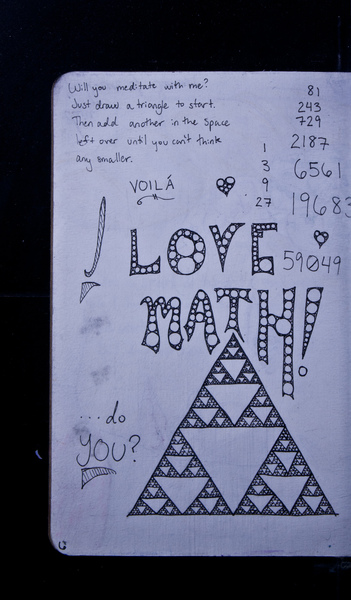 Will you meditate with me?
Just draw a triangle to start.
Then add another in the space
left over until you can't think
any smaller.
VOILÁ
1
3
9
27
81
243
729
2187
6561
19683
59049
I
LOVE
MATH!
...do
you?